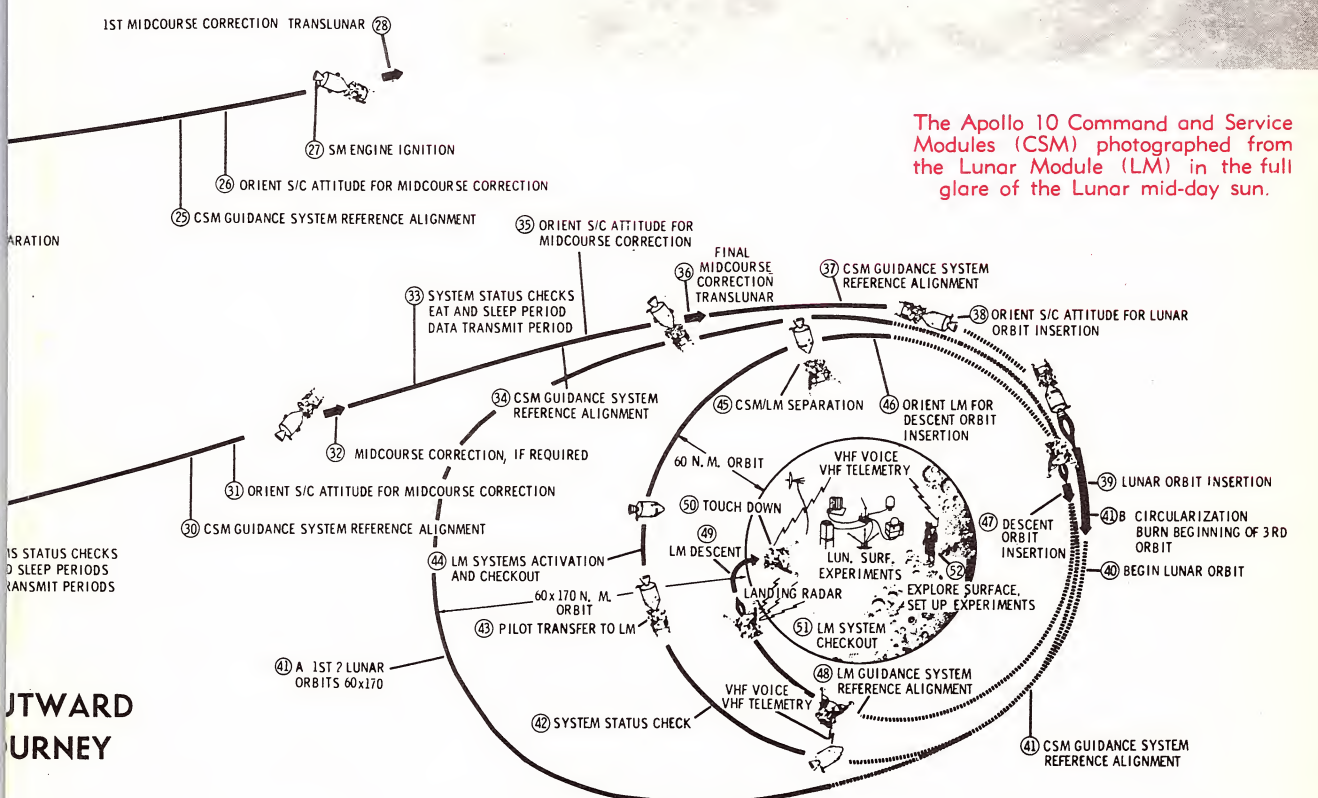 1ST MIDCOURSE CORRECTION TRANSLUNAR 28
27 SM ENGINE IGNITION
26 ORIENT S/C ATTITUDE FOR MIDCOURSE CORRECTION
25 CSM GUIDANCE SYSTEM REFERENCE ALIGNMENT
The Apollo 10 Command and Service
Modules (CSM) photographed from
the Lunar Module (LM) in the full
glare of the Lunar mid-day sun.
ARATION
35 ORIENT S/C ATTITUDE FOR
MIDCOURSE CORRECTION
36 FINAL
MIDCOURSE
CORRECTION
TRANSLUNAR
37 CSM GUIDANCE SYSTEM
REFERENCE ALIGNMENT
38 ORIENT S/C ATTITUDE FOR LUNAR
ORBIT INSERTION
33 SYSTEM STATUS CHECKS
EAT AND SLEEP PERIOD
DATA TRANSMIT PERIOD
34 CSM GUIDANCE SYSTEM
REFERENCE ALIGNMENT
45 CSM/LM SEPARATION
46 ORIENT LM FOR
DESCENT ORBIT
INSERTION
32 MIDCOURSE CORRECTION, IF REQUIRED
31 ORIENT S/C ATTITUDE FOR MIDCOURSE CORRECTION
30 CSM GUIDANCE SYSTEM REFERENCE ALIGNMENT
60 N. M. ORBIT
VHF VOICE
VHF TELEMETRY
50 TOUCH DOWN
49
LM DESCENT
LUN. SURF.
EXPERIMENTS
52
EXPLORE SURFACE,
SET UP EXPERIMENTS
LANDING RADAR
51 LM SYSTEM
CHECKOUT
47 DESCENT
ORBIT
INSERTION
39 LUNAR ORBIT INSERTION
41B CIRCULARIZATION
BURN BEGINNING OF 3RD
ORBIT
40 BEGIN LUNAR ORBIT
IS STATUS CHECKS
D SLEEP PERIODS
RANSMIT PERIODS
44 LM SYSTEMS ACTIVATION
AND CHECKOUT
60x170 N. M.
ORBIT
43 PILOT TRANSFER TO LM
41 A 1ST 2 LUNAR
ORBITS 60x170
48 LM GUIDANCE SYSTEM
REFERENCE ALIGNMENT
VHF VOICE
VHF TELEMETRY
42 SYSTEM STATUS CHECK
41 CSM GUIDANCE SYSTEM
REFERENCE ALIGNMENT
UTWARD
URNEY